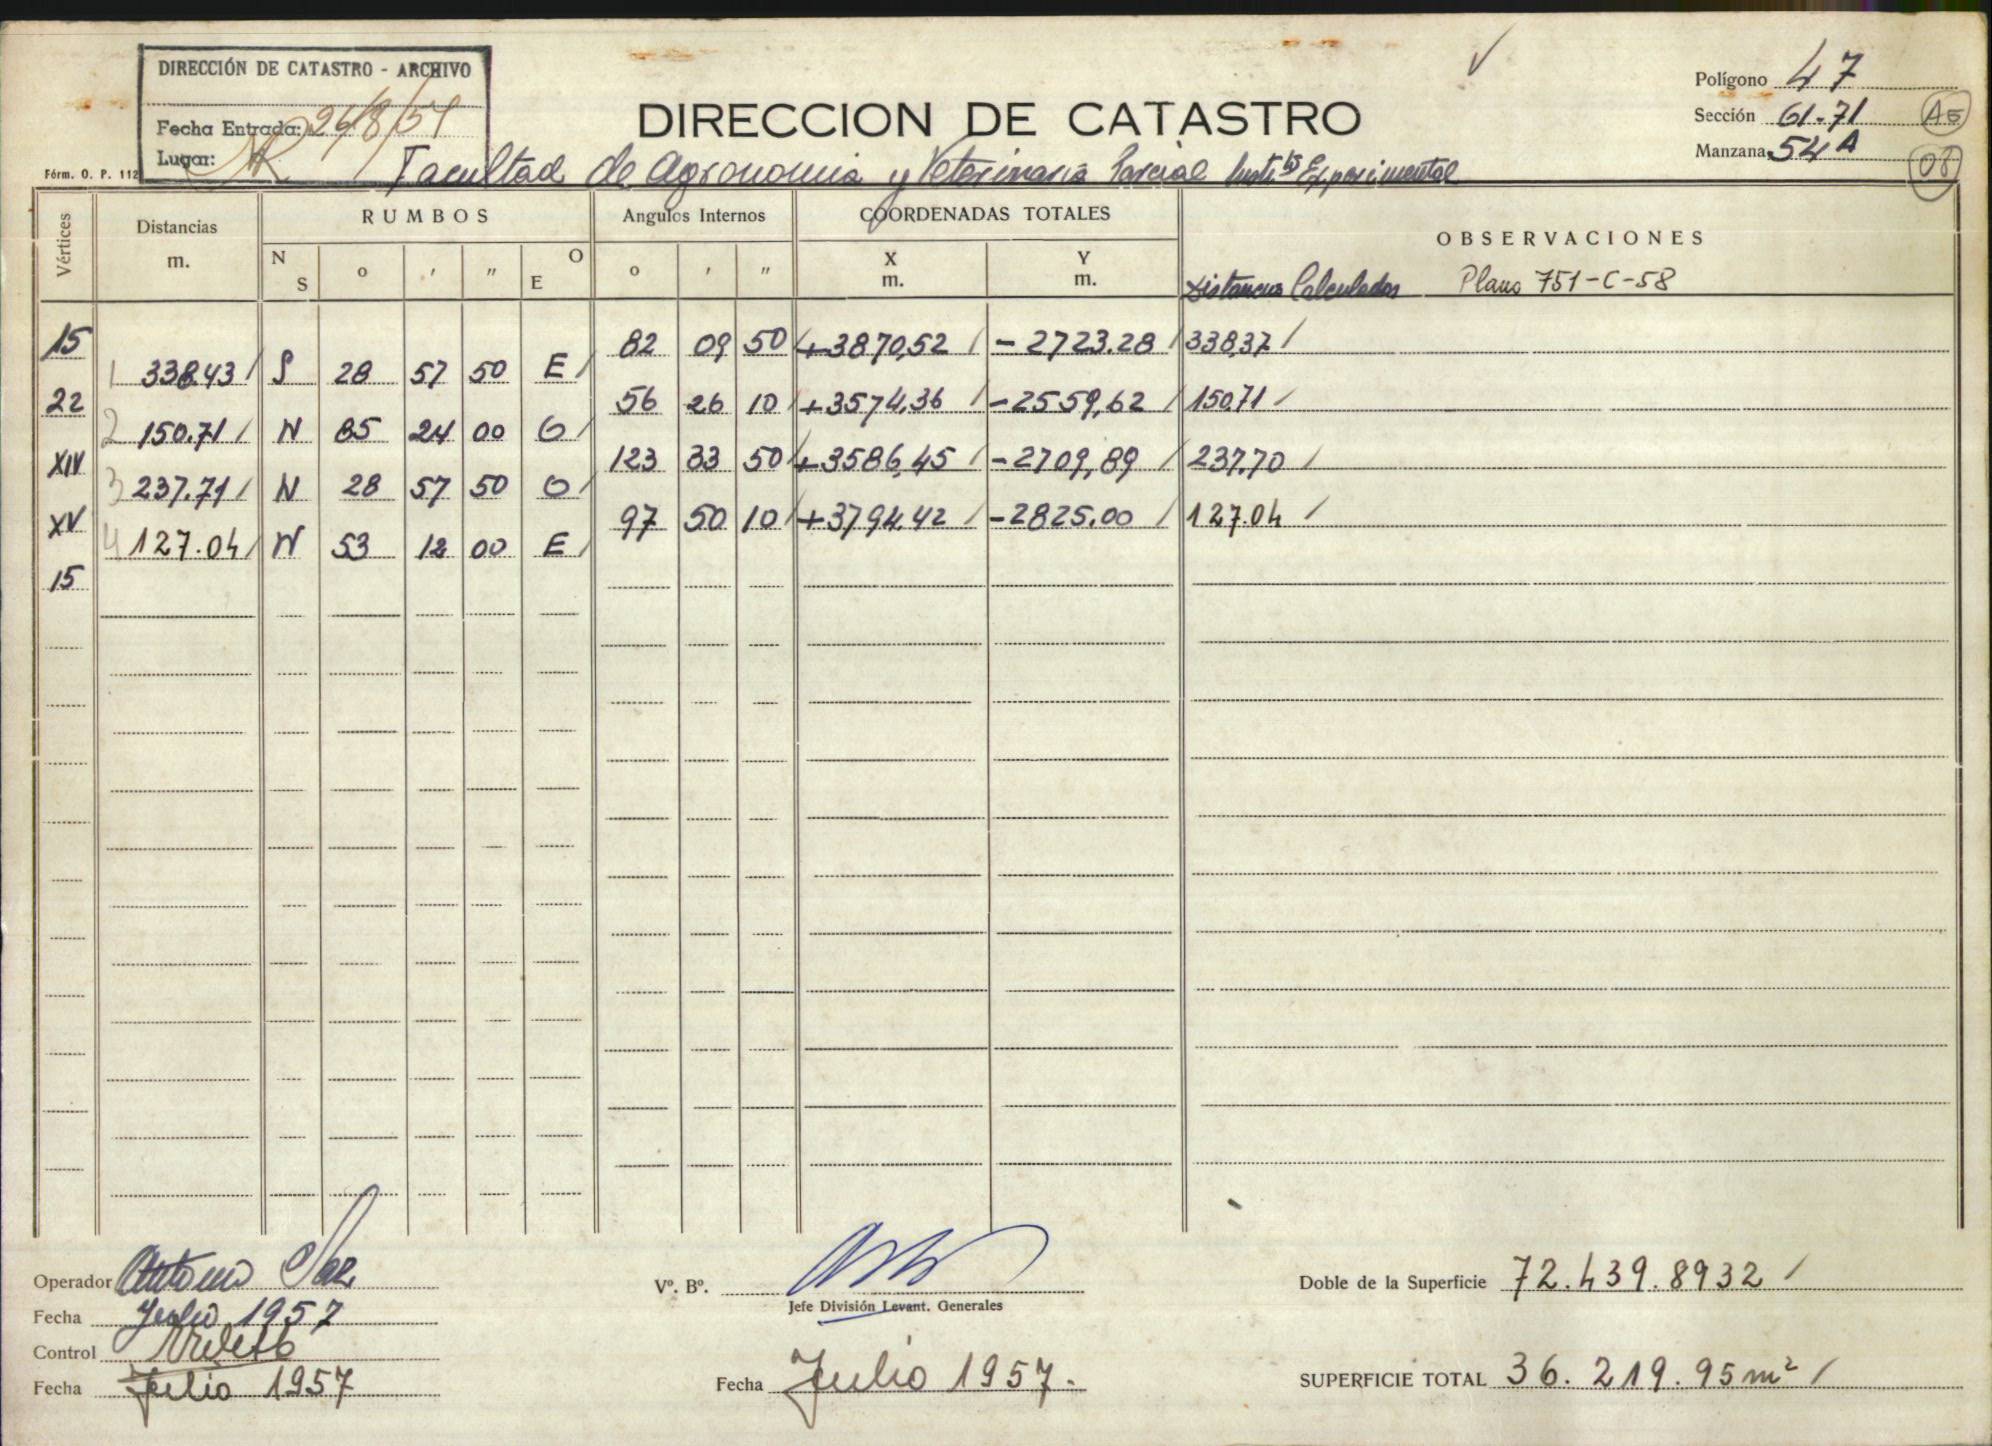 DIRECCIÓN DE CATASTRO - ARCHIVO
Fecha Entrada: 26/8/57
Lugar:
Fórm. O. P. 112
DIRECCION DE CATASTRO
Facultad de Agronomia y Veterinaria Parcial Insti.to Experimental
Polígono 47
Sección 61-71
Manzana 54A
A5
08
Vértices
Distancias
m.
RUMBOS
N S o ' " E O
Angulos Internos
o ' "
COORDENADAS TOTALES
X
m.
Y
m.
OBSERVACIONES
Distancias Calculadas Plano 751-C-58
15 82 09 50 +3870,52 / -2723.28 / 338,37 /
1 338.43 / S 28 57 50 E /
22 56 26 10 / +3574,36 / -2559,62 / 150,71 /
2 150.71 / N 85 24 00 O /
XIV 123 33 50 / +3586,45 / -2709,89 / 237,70 /
3 237.71 / N 28 57 50 O /
XV 97 50 10 / +3794,42 / -2825.00 / 127.04 /
4 127.04 / N 53 12 00 E /
15
Operador Antonio
Fecha Julio 1957
Control
Fecha Julio 1957
Vº. Bº.
Jefe División Levant. Generales
Fecha Julio 1957.
Doble de la Superficie 72.439.8932 /
SUPERFICIE TOTAL 36.219.95 m² /